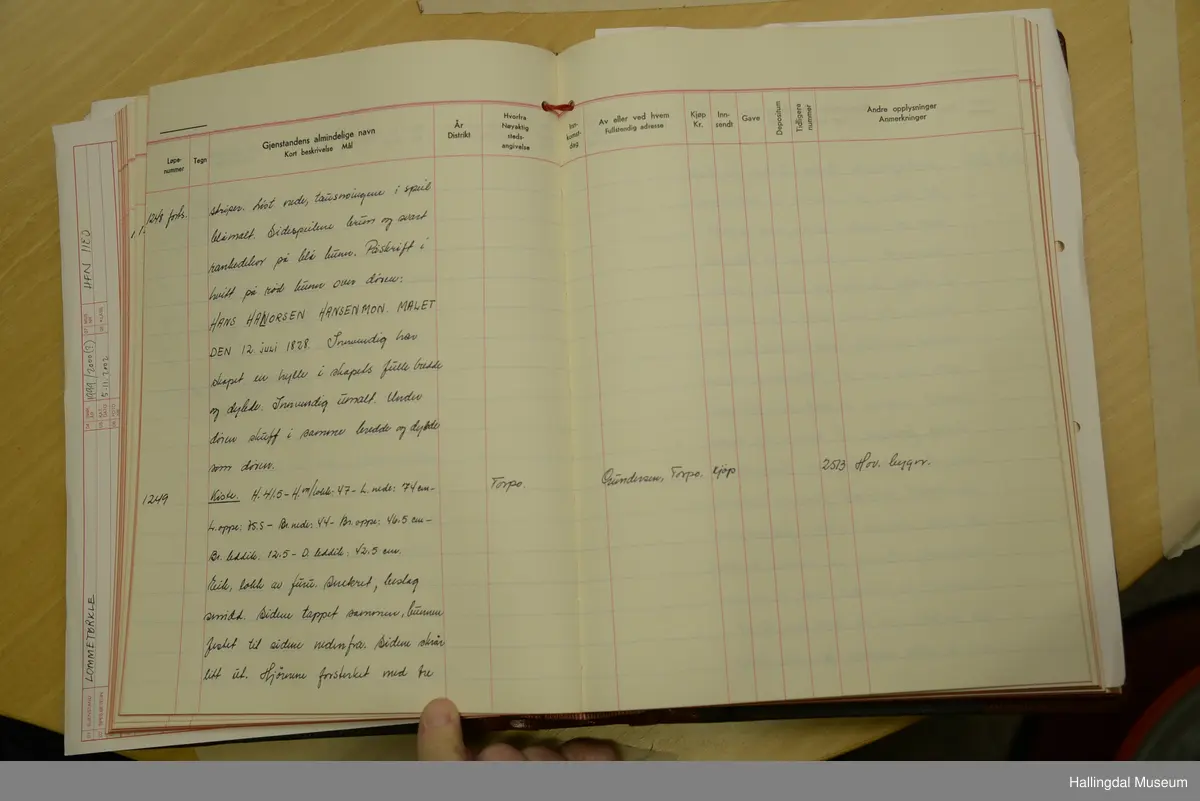 Løpe-
nummer
Tegn
Gjenstandens almindelige navn
Kort beskrivelse Mål
År
Distrikt
Hvorfra
Nøyaktig
steds-
angivelse
Inn-
komst-
dag
Av eller ved hvem
Fullstendig adresse
Kjøp
Kr.
Inn-
sendt
Gave
Depositum
Tidligere
nummer
Andre opplysninger
Anmerkninger
1248 forts.
striper. List nede, tausnoingene i speil
blåmalt. Sidespeilene brun og svart
rankedekor på blå bunn. Påskrift i
hvitt på rød bunn over døren:
HANS HALVORSEN HANSENMON. MALET
DEN 12 juli 1828. Innvendig har
skapet en hylle i skapets fulle bredde
og dybde. Innvendig umalt. Under
døren skuff i samme bredde og dybde
som døren.
1249 Kiste. H. 41.5 - H. m/lokk: 47 - L. nede: 74 cm - Torpo. Gundersen, Torpo. kjøp 2513 Hov. bygn.
L. oppe: 75.5 - Br. nede: 44 - Br. oppe: 46.5 cm -
Br. leddik: 12.5 - D. leddik: 42.5 cm.
Eik, lokk av furu. Snekret, beslag
smidd. Sidene tappet sammen, bunnen
festet til sidene nedenfra. Sidene skrår
litt ut. Hjørnene forsterket med tre
LOMMETØRKLE
1999/2000(?)
5.11.2002
HFN NED
Hallingdal Museum